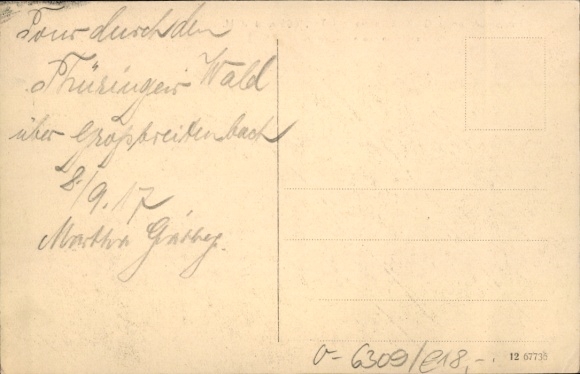 Tour durch den
Thüringer Wald
über Großbreitenbach
8/9.17
Martha
6309/
12 67735